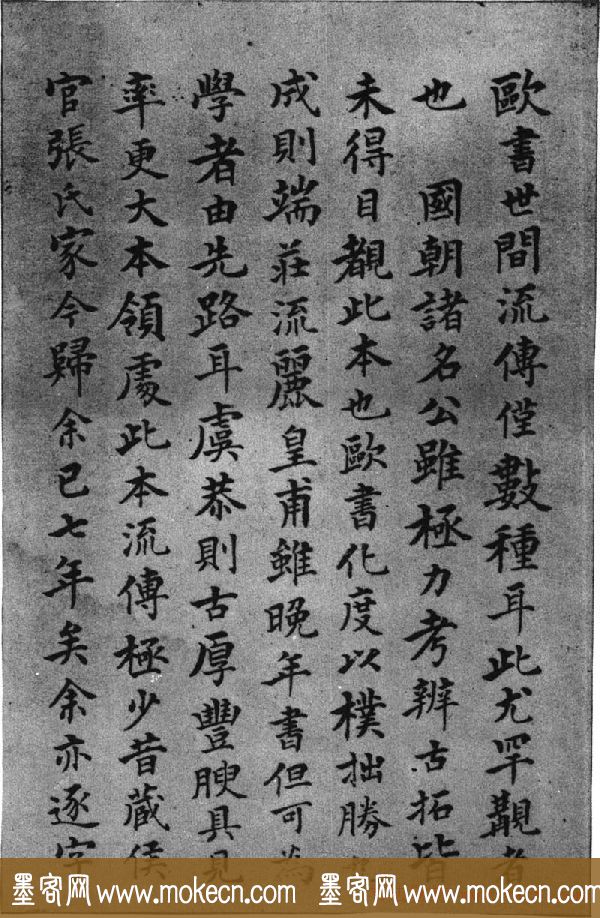 歐書世間流傳僅數種耳此尤罕覯者
也　國朝諸名公雖極力考辨古拓皆
未得目覩此本也歐書化度以樸拙勝
成則端莊流麗皇甫雖晚年書但可為
學者由先路耳虞恭則古厚豐腴具見
率更大本領處此本流傳極少昔藏侯
官張氏家今歸余已七年矣余亦逐字
墨客网 www.mokecn.com 墨客网 www.mokecn.com